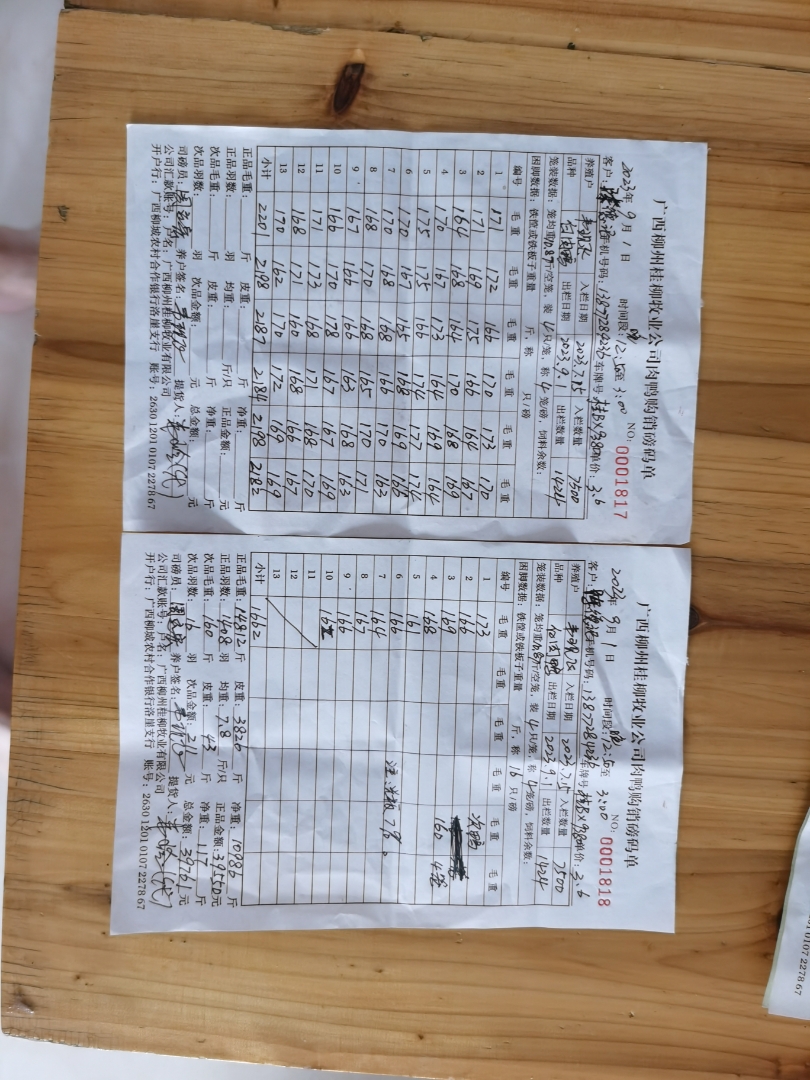 广西柳州桂柳牧业公司肉鸭购销磅码单
2023年 9月 1日 时间段: 晚12:5至 3:00 NO: 0001817
客户: 手机号码: 13877284236 车牌号: 桂BX9380 单价: 3.6
养殖户 入栏日期 2023.7.15 入栏数量 7500
品种 白圆鸭 出栏日期 2023.9.1 出栏数量 1424
笼装数据: 笼均重 斤/空笼, 装 4只/笼, 称 4笼/磅, 饲料余数:
困脚数据: 铁筐或铁板子重量 斤, 称 只/磅
编号 毛重 毛重 毛重 毛重 毛重 毛重
1 171 172 166 170 173 170
2 171 169 175 166 164 167
3 164 168 164 170 168 169
4 170 167 173 164 169 164
5 175 175 166 174 177 174
6 170 167 165 168 169 165
7 170 168 168 166 170 163
8 168 170 168 165 170 171
9 167 166 166 163 168 163
10 166 170 178 167 167 169
11 171 173 168 171 168 170
12 168 171 160 168 166 167
13 170 162 170 172 169 169
小计 2201 2198 2187 2184 2198 2182
正品毛重: 斤 皮重: 斤 净重: 斤
正品羽数: 羽 均重: 斤/只 正品金额: 元
次品毛重: 斤 皮重: 斤 净重: 斤
次品羽数: 羽 次品金额: 元 总金额: 元
司磅员: 养户签名: 提货人:
公司汇款账号: 户名: 广西柳州桂柳牧业有限公司
开户行: 广西柳城农村合作银行洛崖支行 账号: 2630 1201 0107 2278 67
广西柳州桂柳牧业公司肉鸭购销磅码单
2023年 9月 1日 时间段: 晚12:5至 3:00 NO: 0001818
客户: 手机号码: 13877284236 车牌号: 桂BX9380 单价: 3.6
养殖户 入栏日期 2023.7.15 入栏数量 7500
品种 白圆鸭 出栏日期 2023.9.1 出栏数量 1424
笼装数据: 笼均重 斤/空笼, 装 4只/笼, 称 4笼/磅, 饲料余数:
困脚数据: 铁筐或铁板子重量 斤, 称 16 只/磅
编号 毛重 毛重 毛重 毛重 毛重 毛重
1 173 次鸭
2 166
3 169
4 168 160 4笼
5 161
6 166
7 164
8 167
9 166
10 162
11
12
13
小计 1662
正品毛重: 14812 斤 皮重: 3826 斤 净重: 10986 斤
正品羽数: 1408 羽 均重: 7.8 斤/只 正品金额: 39550 元
次品毛重: 160 斤 皮重: 43 斤 净重: 117 斤
次品羽数: 16 羽 次品金额: 211 元 总金额: 39761 元
司磅员: 养户签名: 提货人:
公司汇款账号: 户名: 广西柳州桂柳牧业有限公司
开户行: 广西柳城农村合作银行洛崖支行 账号: 2630 1201 0107 2278 67
01 0107 2278 67